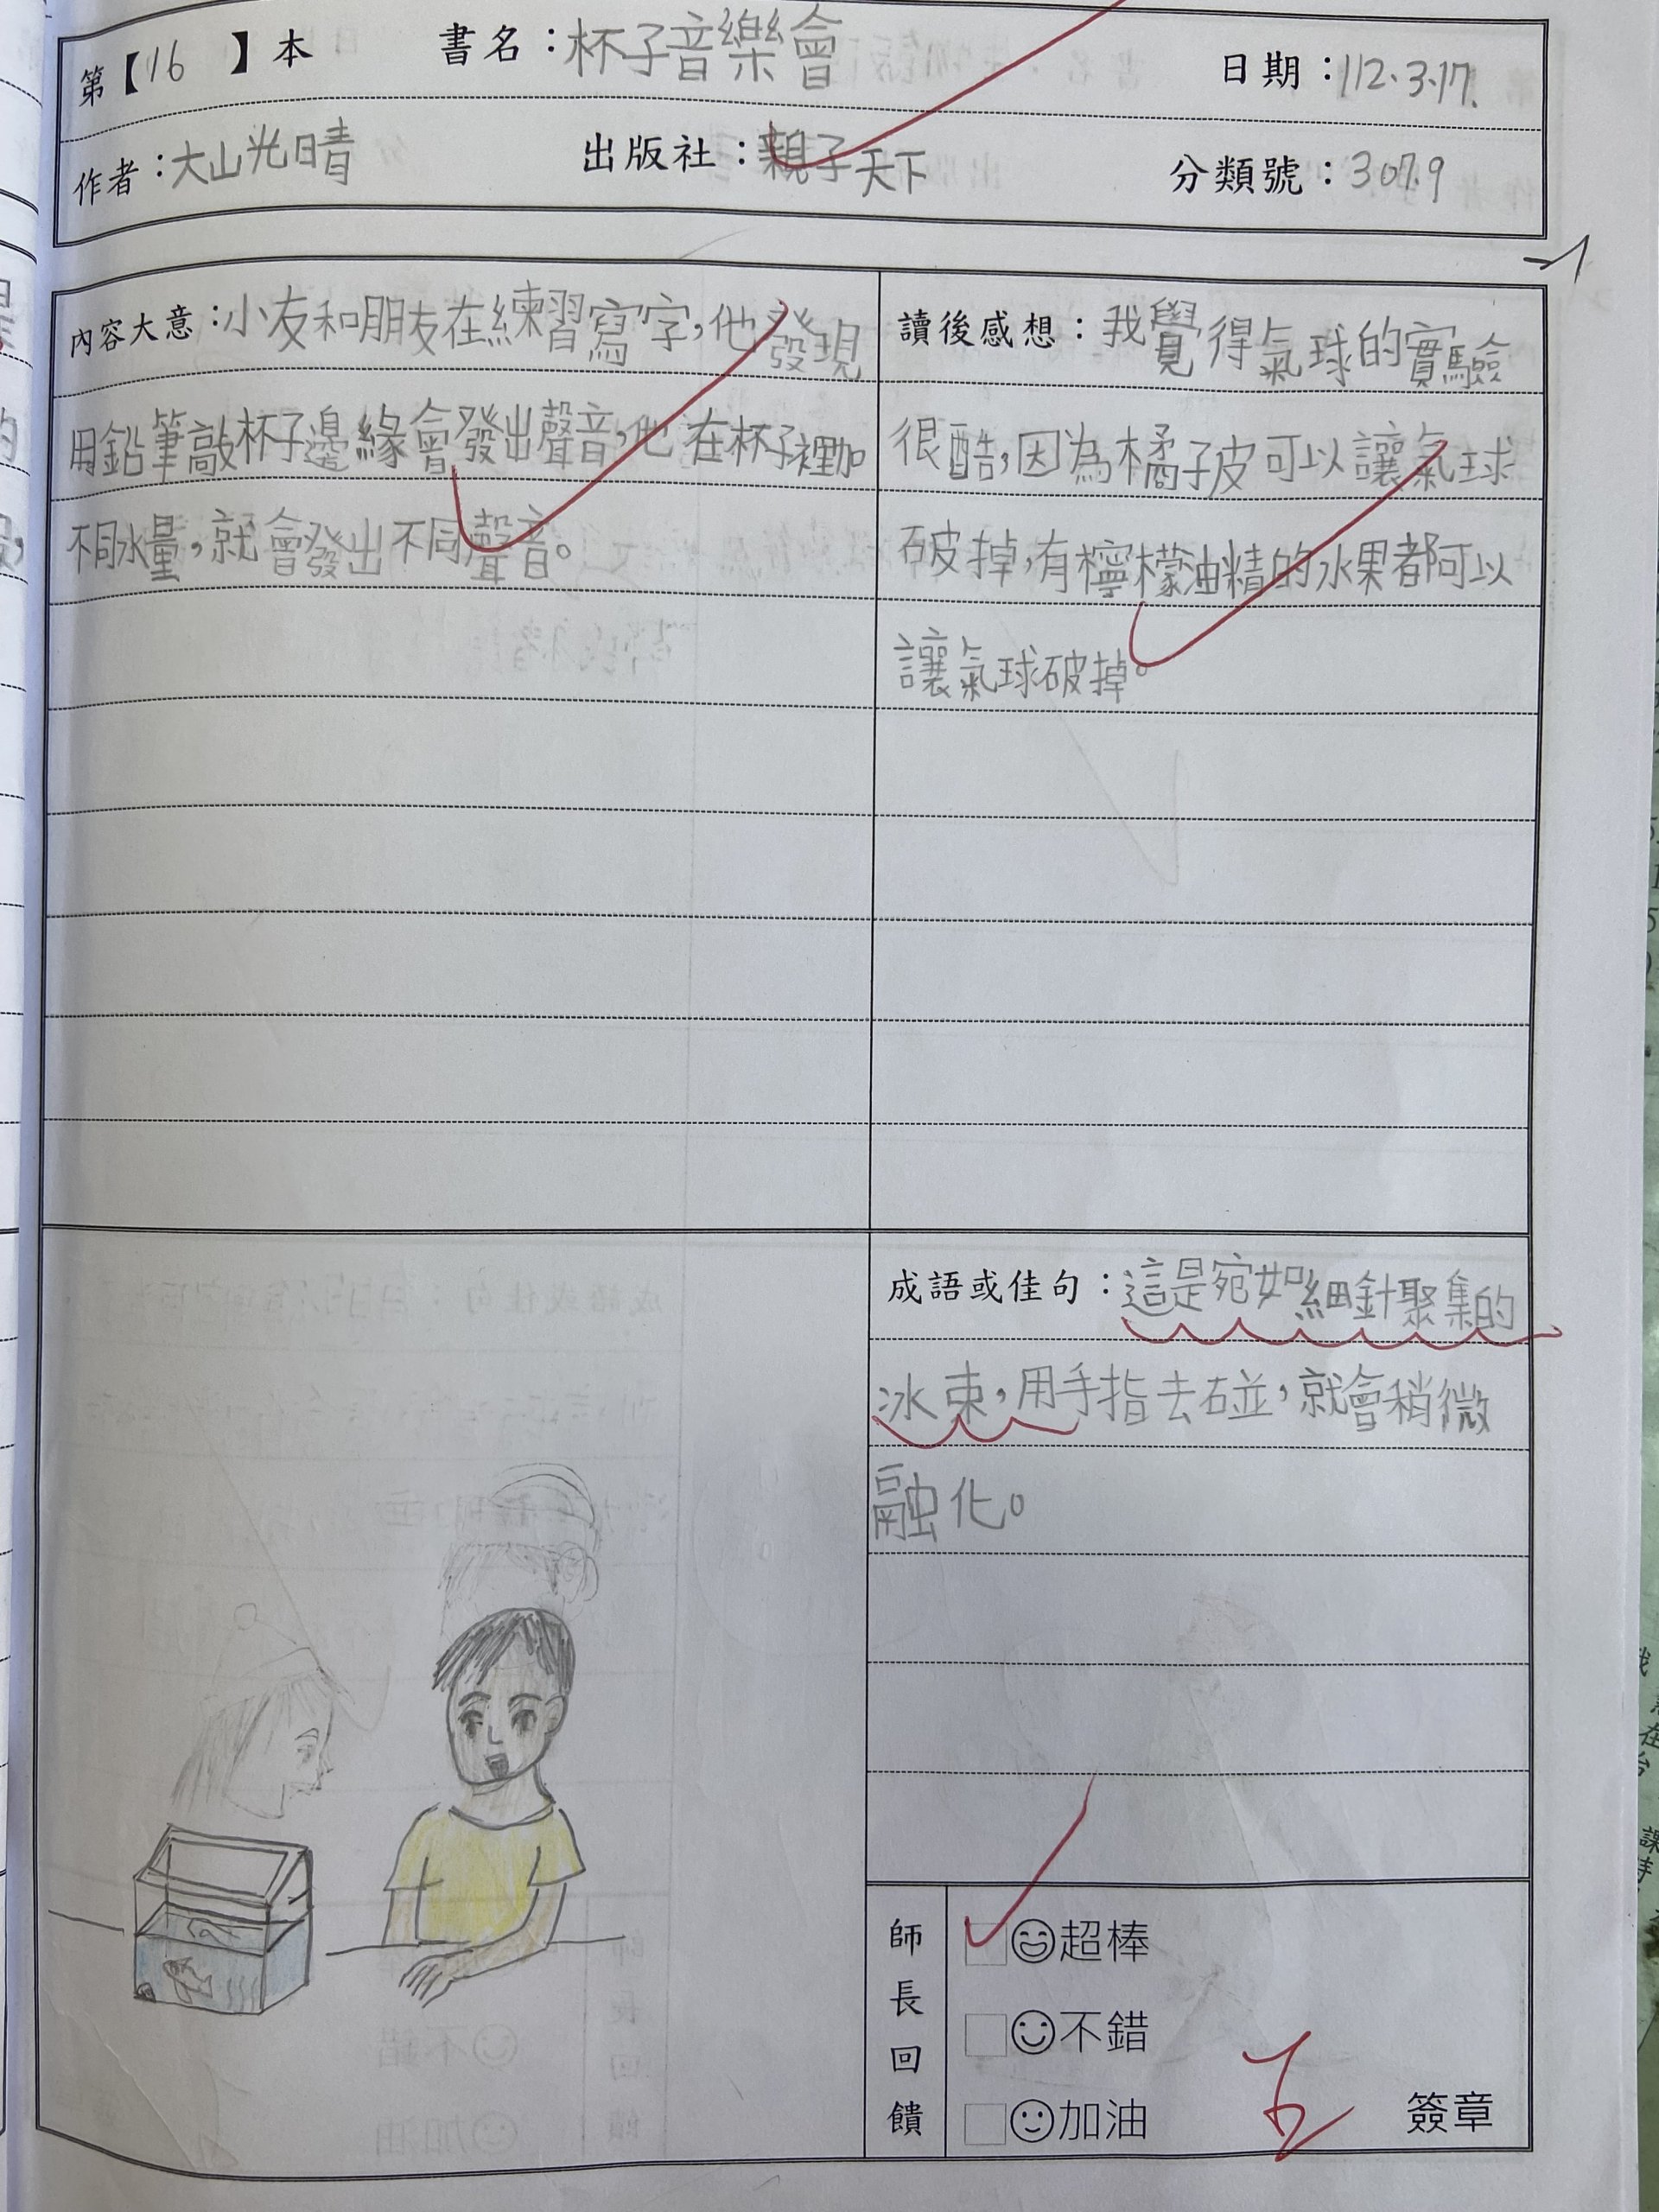 第【16】本 書名：杯子音樂會 日期：112.3.17.
作者：大山光晴 出版社：親子天下 分類號：307.9
內容大意：小友和朋友在練習寫字，他發現
用鉛筆敲杯子邊緣會發出聲音，他在杯子裡加
不同水量，就會發出不同聲音。
讀後感想：我覺得氣球的實驗
很酷，因為橘子皮可以讓氣球
破掉，有檸檬油精的水果都可以
讓氣球破掉。
成語或佳句：這是宛如細針聚集的
冰束，用手指去碰，就會稍微
融化。
師長回饋
超棒
不錯
加油
簽章